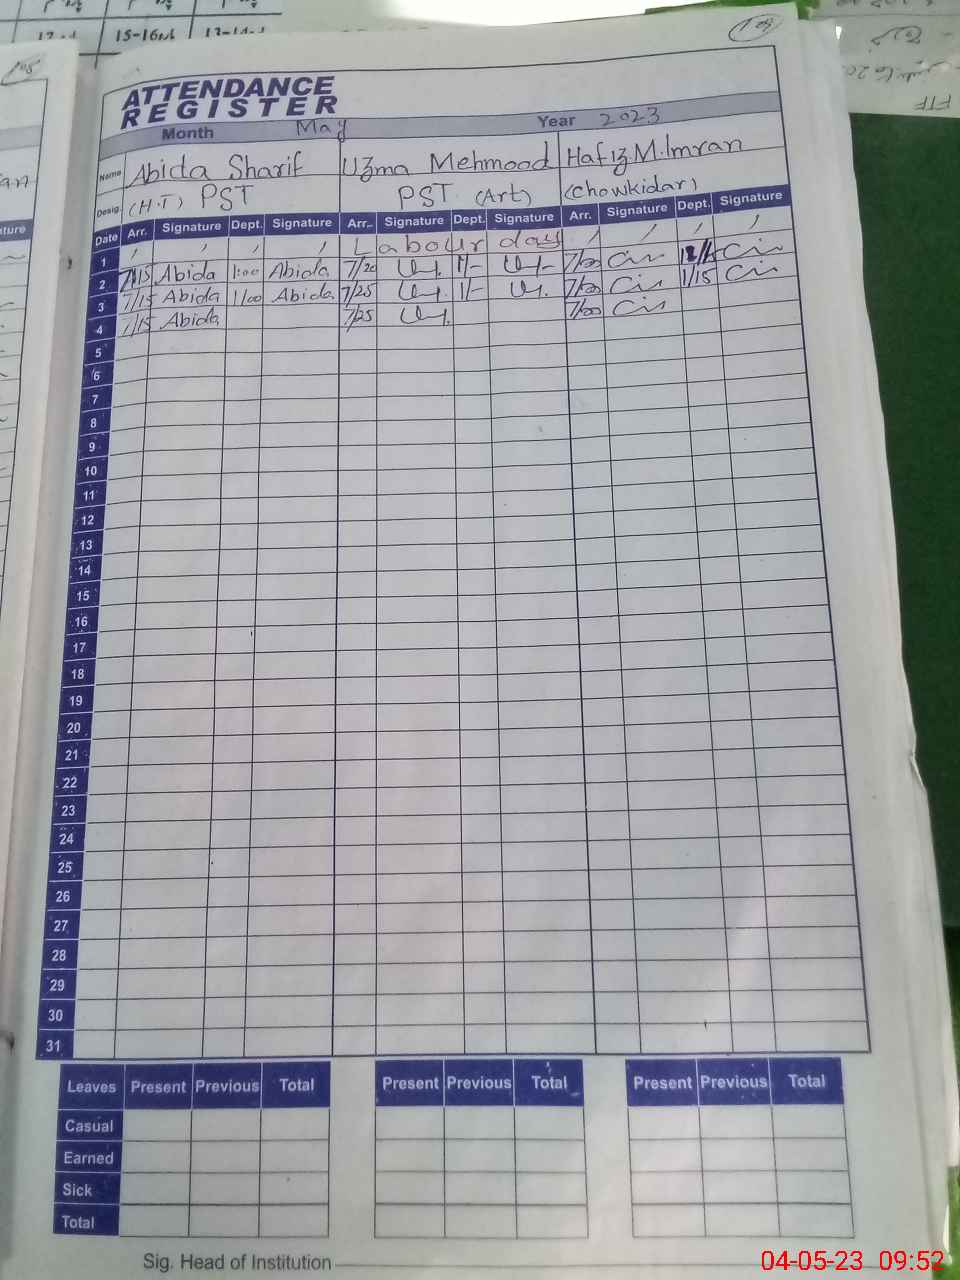 15-16
109
ATTENDANCE
REGISTER
Month May Year 2023
Name Abida Sharif Uzma Mehmood Hafiz M.Imran
Desig. (H.T) PST PST (Art) (Chowkidar)
Date Arr. Signature Dept. Signature Arr. Signature Dept. Signature Arr. Signature Dept. Signature
1 Labour day
2 7/15 Abida 1:00 Abida 7/20 1/- 7/00
3 7/15 Abida 1/00 Abida 7/25 1/- 7/00 1/15
4 7/15 Abida 7/25 7/00
5
6
7
8
9
10
11
12
13
14
15
16
17
18
19
20
21
22
23
24
25
26
27
28
29
30
31
Leaves Present Previous Total Present Previous Total Present Previous Total
Casual
Earned
Sick
Total
Sig. Head of Institution
04-05-23 09:52